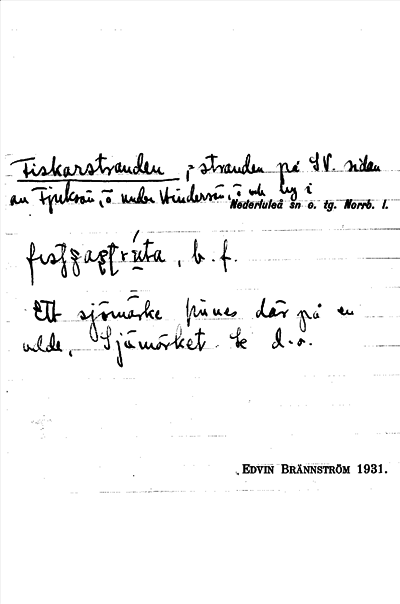 Fiskarstranden, = stranden på SV. sidan
av Fjuksön, ö under Hindersön, ö och by i
Nederluleå sn o. tg. Norrb. l.
b. f.
Ett sjömärke finnes där på en
udde, Sjömärket se d. o.
EDVIN BRÄNNSTRÖM 1931.